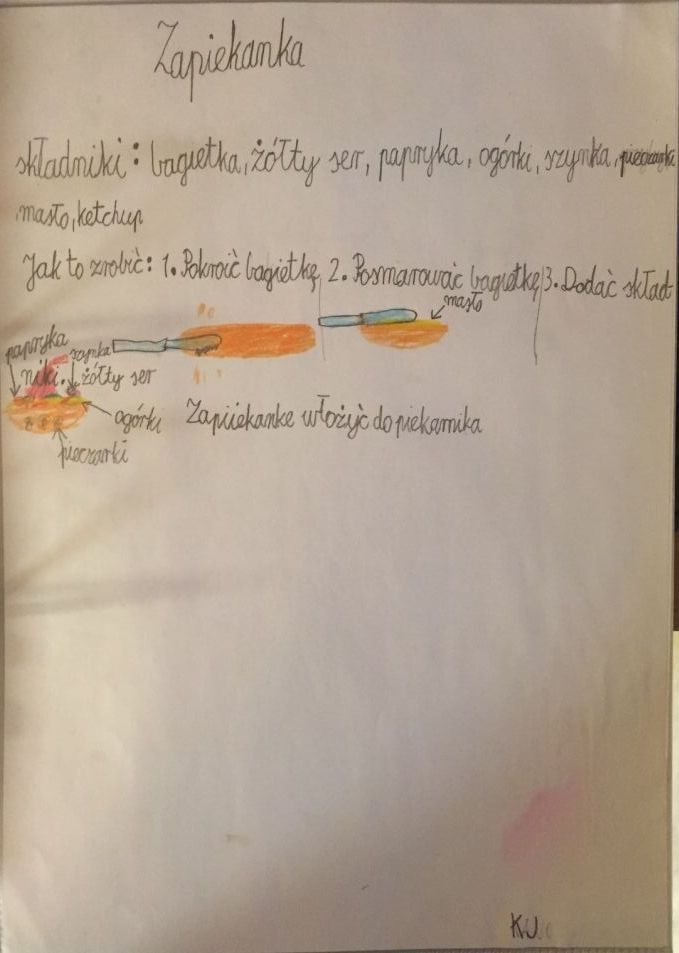 Zapiekanka
składniki: bagietka, żółty ser, papryka, ogórki, szynka, pieczarki
masło, ketchup
Jak to zrobić: 1. Pokroić bagietkę 2. Posmarować bagietkę 3. Dodać skład
masło
papryka szynka
niki. żółty ser
ogórki Zapiiekanke włożyć do piekarnika
pieczarki
KJ